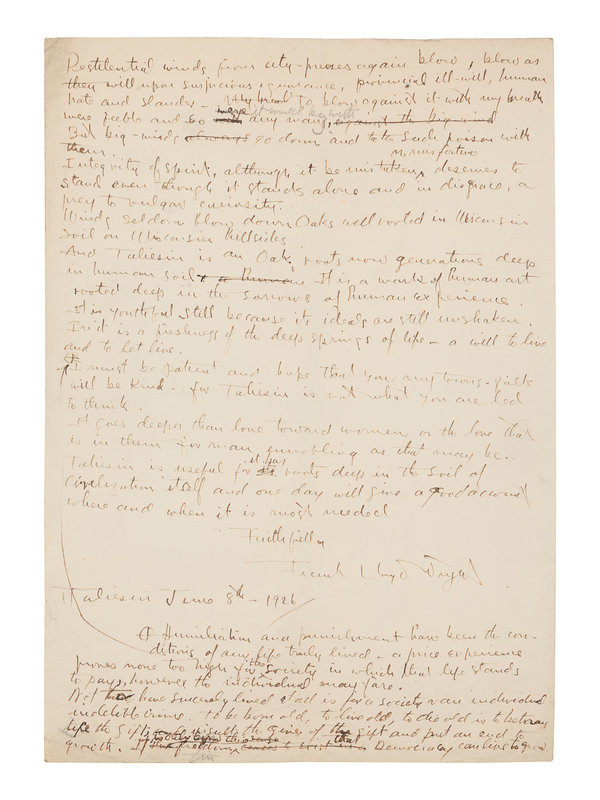 Pestilential winds from city-presses again blow, blow as
they will upon suspicious ignorance, provincial ill-will, human
hate and slander - to blow against it with my breath
were feeble and so it would be anyway, against the big wind
But big-winds always go down and take such poison with
them. misfortune
Integrity of spirit, although it be mistaken, deserves to
stand even though it stands alone and in disgrace, a
prey to vulgar curiosity.
Winds seldom blow down Oaks well rooted in Wisconsin
soil on Wisconsin Hillsides
And Taliesin is an Oak, roots now generations deep
in human soil It is a work of human art
rooted deep in the sorrows of human experience.
It is youthful still because its ideals are still unshaken.
In it is a freshness of the deep springs of life - a will to live
and to let live.
I must be patient and hope that you my towns-folk
will be kind - for Taliesin is not what you are led
to think.
It goes deeper than love toward women or the love that
is in them for man, ennobling as that may be..
Taliesin is useful for it has roots deep in the soil of
Civilization itself and one day will give a good account
where and when it is most needed.
Faithfully
Frank Lloyd Wright
Taliesin June 8th - 1926
Humiliation and punishment have been the con-
ditions of any life truly lived - a price experience
proves none too high for the society in which that life stands
to pay, however the individual may fare.
Not to have sincerely lived at all is for a society or an individual
indelible crime. To be born old, to live old, to die old is to betray
life the gift, and insults the giver of the gift and put an end to
growth. If Democracy can live to grow